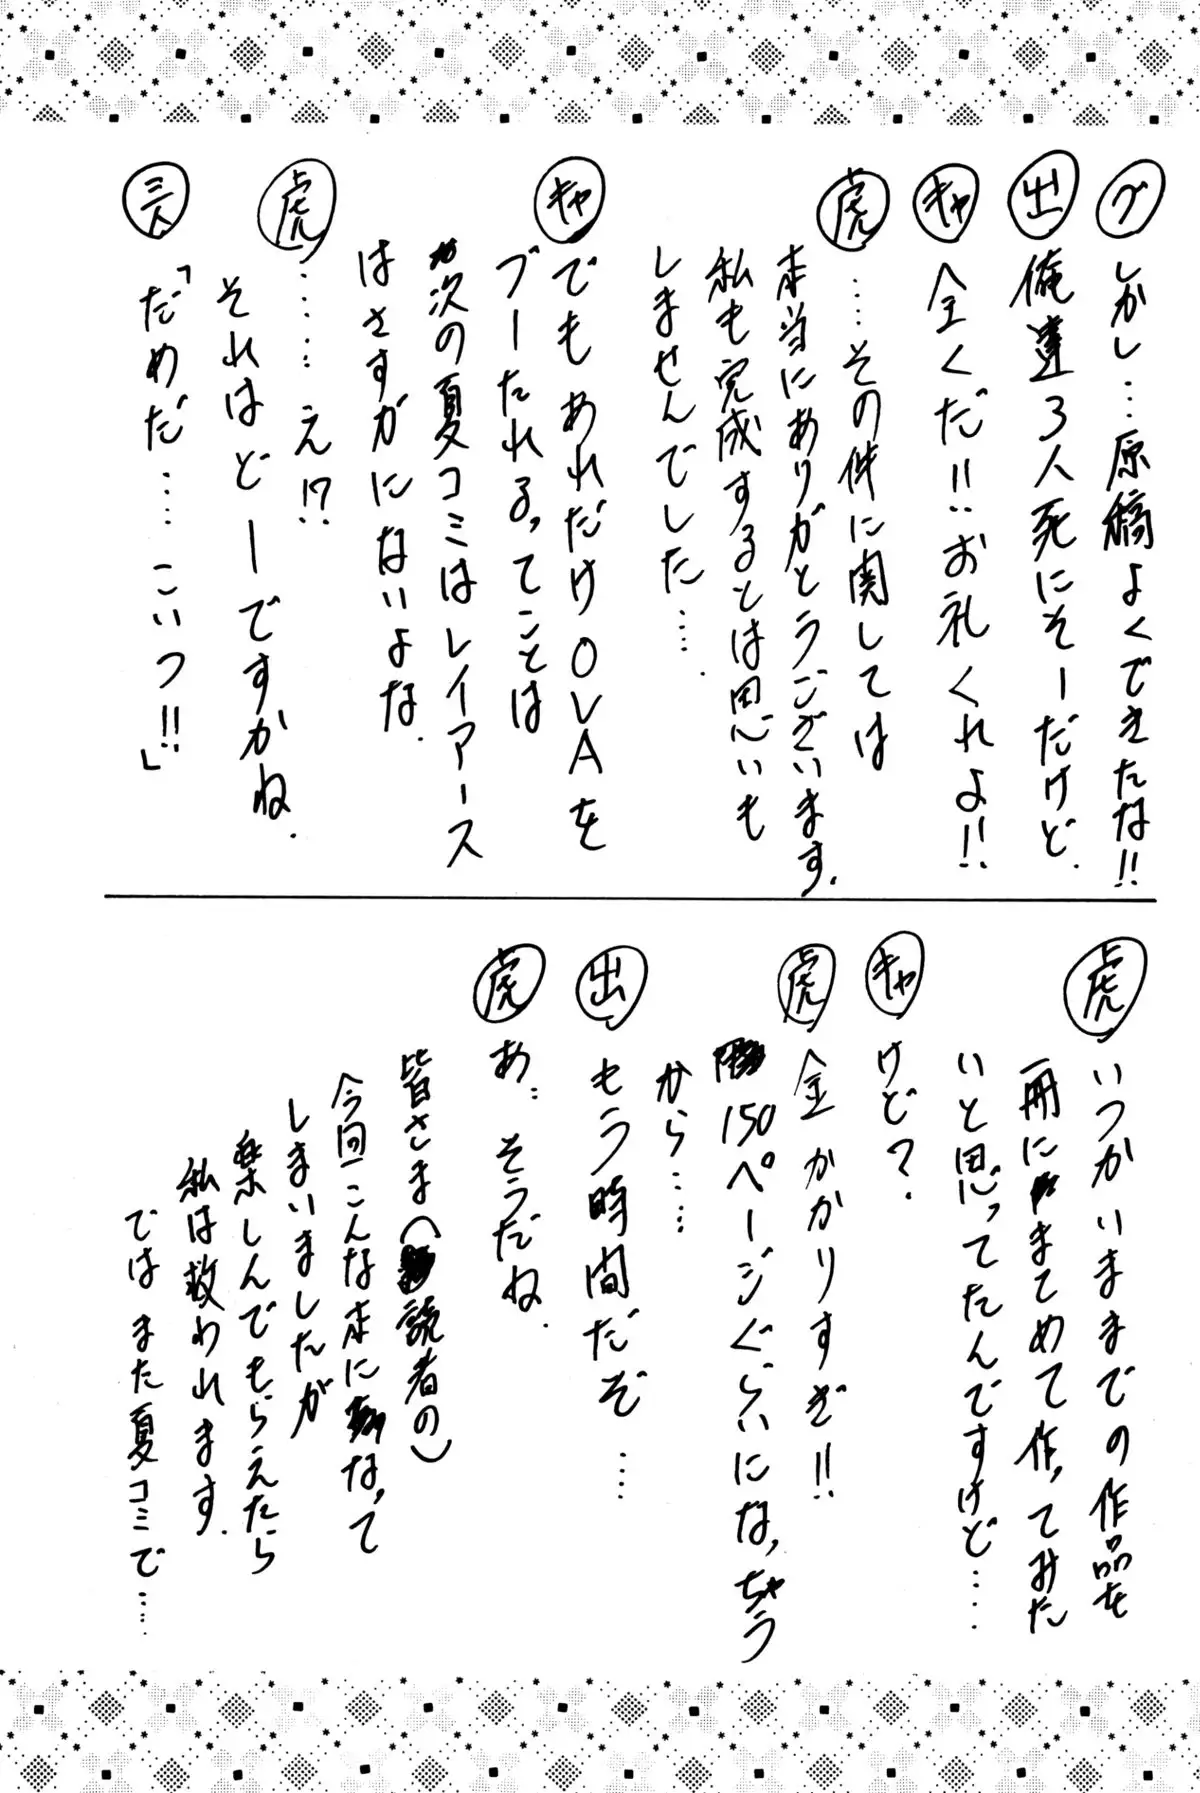 グ しかし…原稿よくできたな!!
出 俺達3人死にそーだけど.
キャ 全くだ!!お礼くれよ!!
虎 ……その件に関しては
本当にありがとうございます.
私も完成するとは思いも
しませんでした…….
キャ でもあれだけOVAを
ブーたれるってことは
次の夏コミはレイアース
はさすがにないよな.
虎 ………え!?
それはどーですかね.
三人 「だめだ……こいつ!!」
虎 いつかいままでの作品を
一冊にまとめて作ってみた
いと思ってたんですけど……
キャ けど?
虎 金かかりすぎ!!
150ページぐらいになっちゃう
から……
出 もう時間だぞ……
虎 あ、そうだね.
皆さま(読者の)
今回こんな本になって
しまいましたが
楽しんでもらえたら
私は救われます.
ではまた夏コミで……